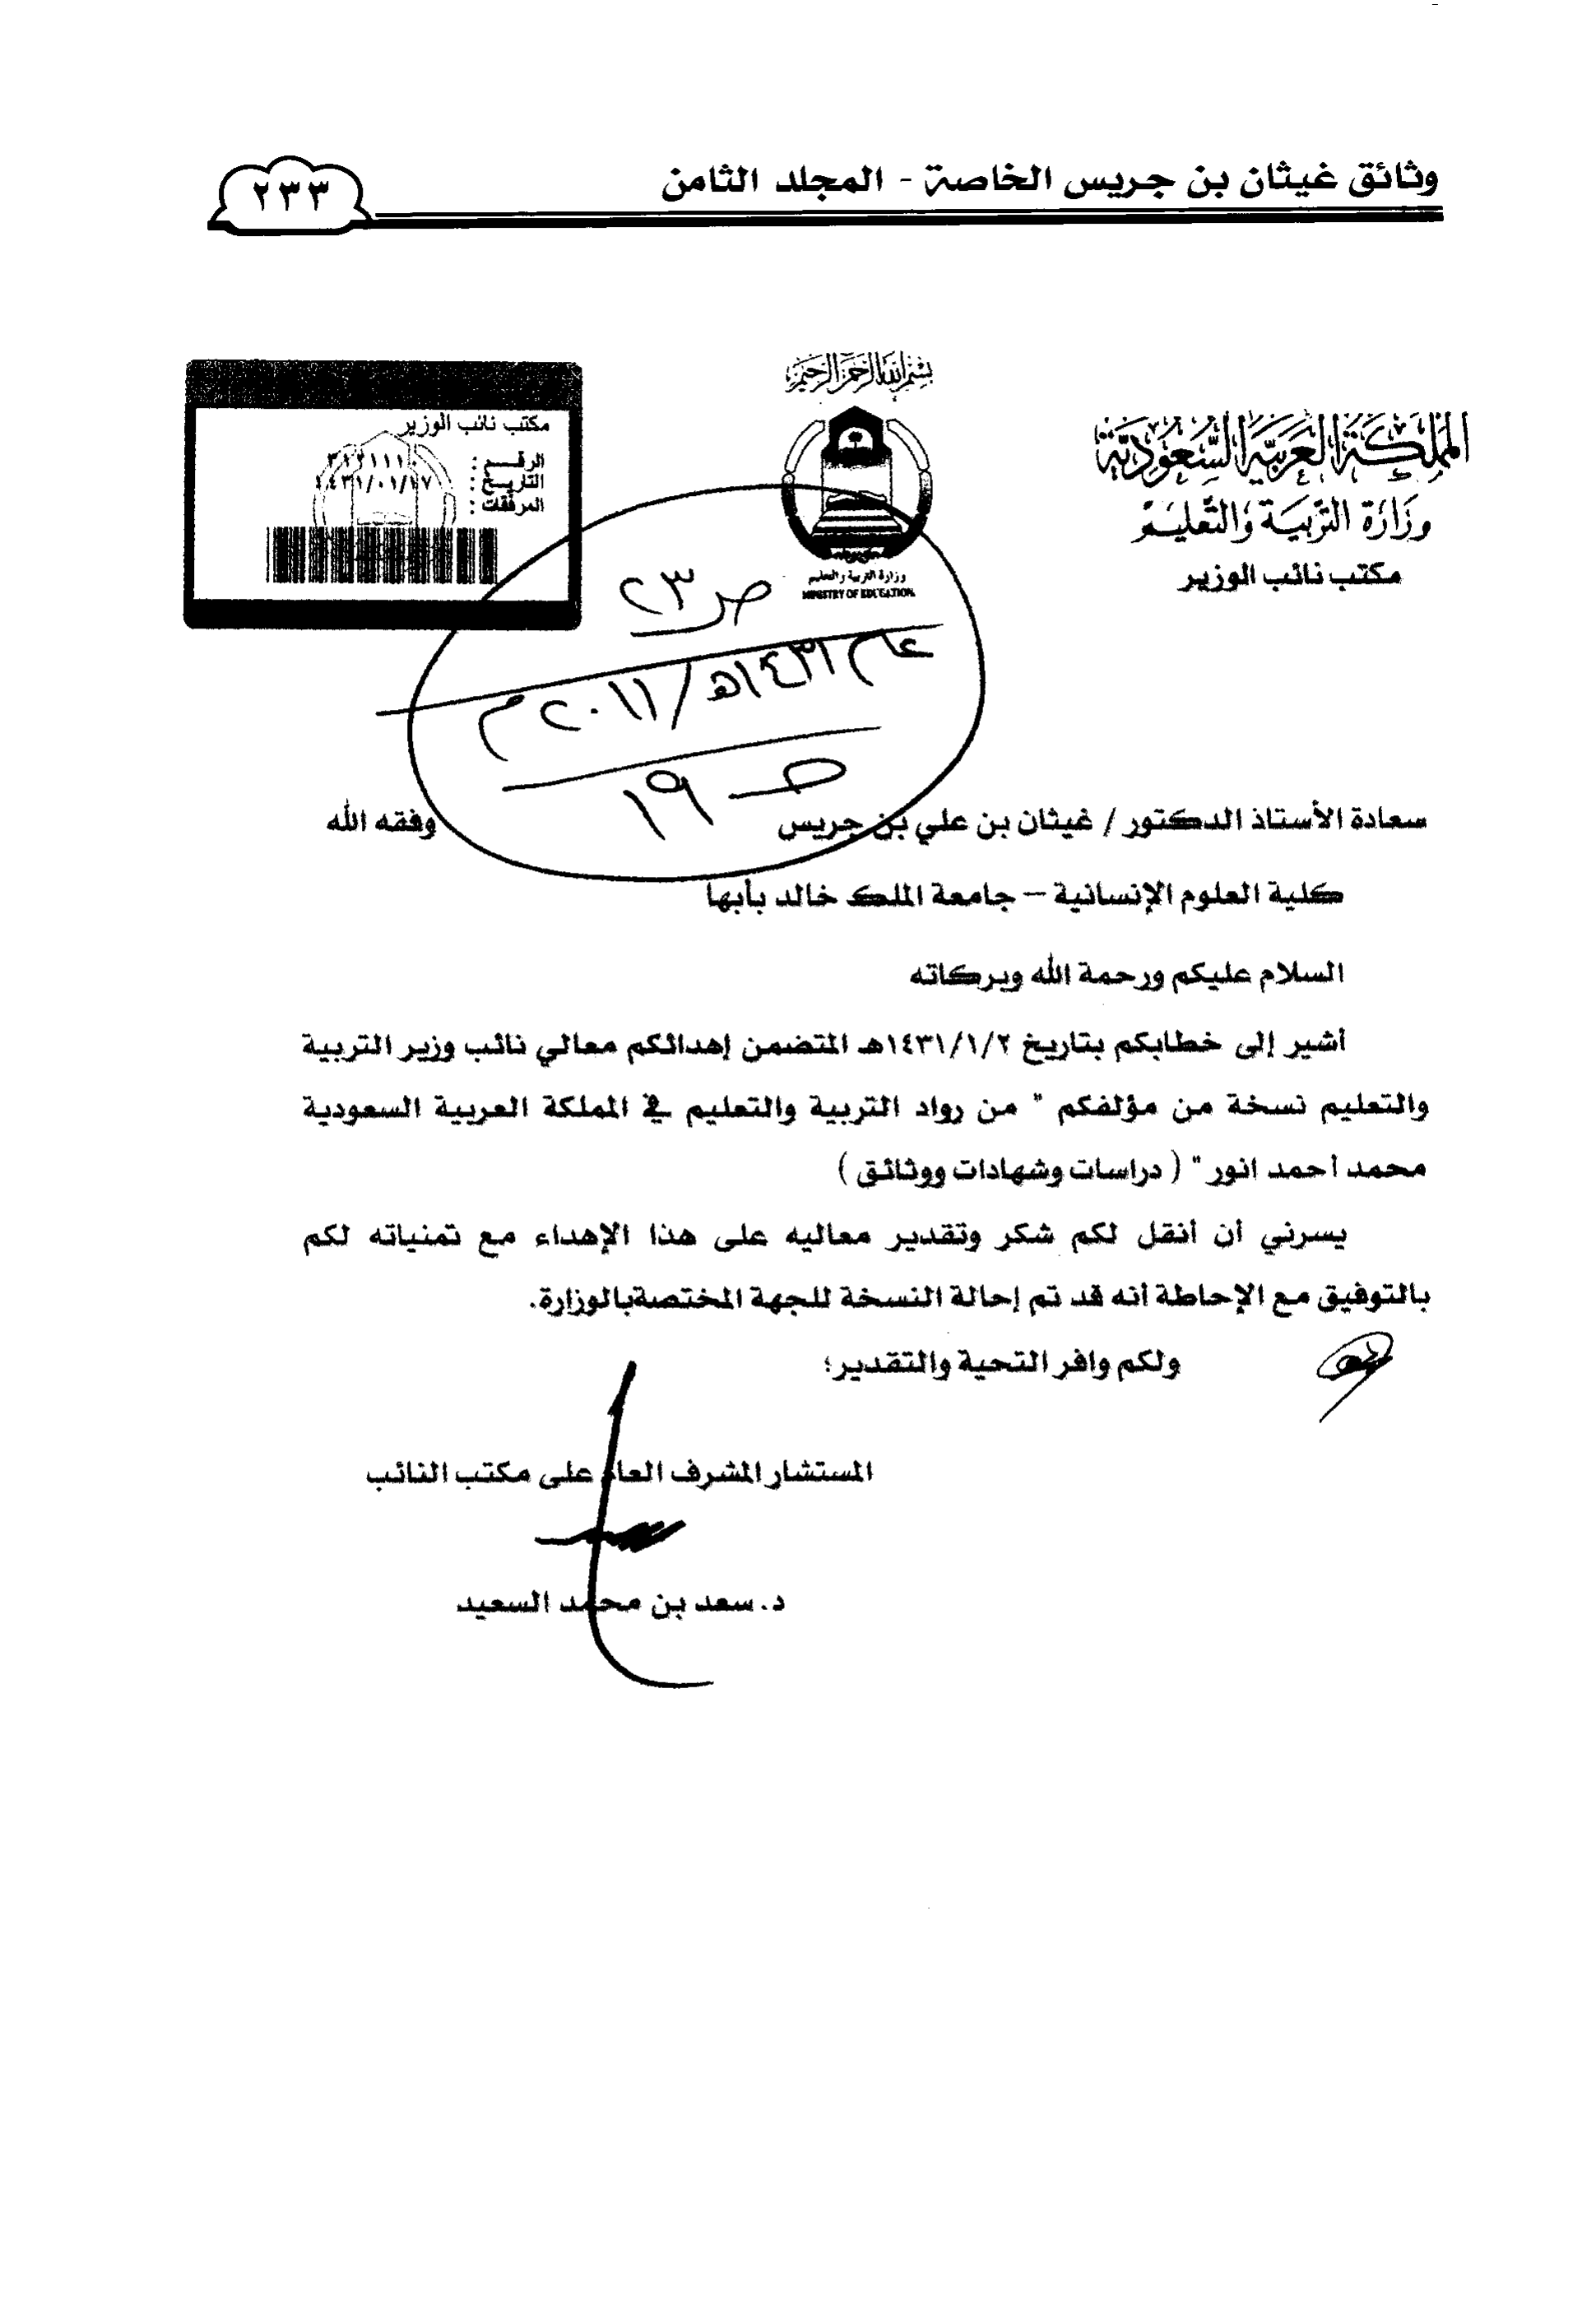 وثائق غيثان بن جريس الخاصة - المجلد الثامن
٢٣٣
بسم الله الرحمن الرحيم
المملكة العربية السعودية
وزارة التربية والتعليم
مكتب نائب الوزير
وزارة التربية والتعليم
MINISTRY OF EDUCATION
مكتب نائب الوزير
الرقم :
التاريخ : ١٤٣١/٠١/١٧
المرفقات :
ص ٢٣
عام ١٤٣١هـ/٢٠١١م
ص ١٩
سعادة الأستاذ الدكتور / غيثان بن علي بن جريس وفقه الله
كلية العلوم الإنسانية – جامعة الملك خالد بأبها
السلام عليكم ورحمة الله وبركاته
أشير إلى خطابكم بتاريخ ١٤٣١/١/٢هـ المتضمن إهدائكم معالي نائب وزير التربية
والتعليم نسخة من مؤلفكم " من رواد التربية والتعليم في المملكة العربية السعودية
محمد أحمد أنور " ( دراسات وشهادات ووثائق )
يسرني أن أنقل لكم شكر وتقدير معاليه على هذا الإهداء مع تمنياته لكم
بالتوفيق مع الإحاطة أنه قد تم إحالة النسخة للجهة المختصة بالوزارة.
ولكم وافر التحية والتقدير؛
المستشار المشرف العام على مكتب النائب
د. سعد بن محمد السعيد